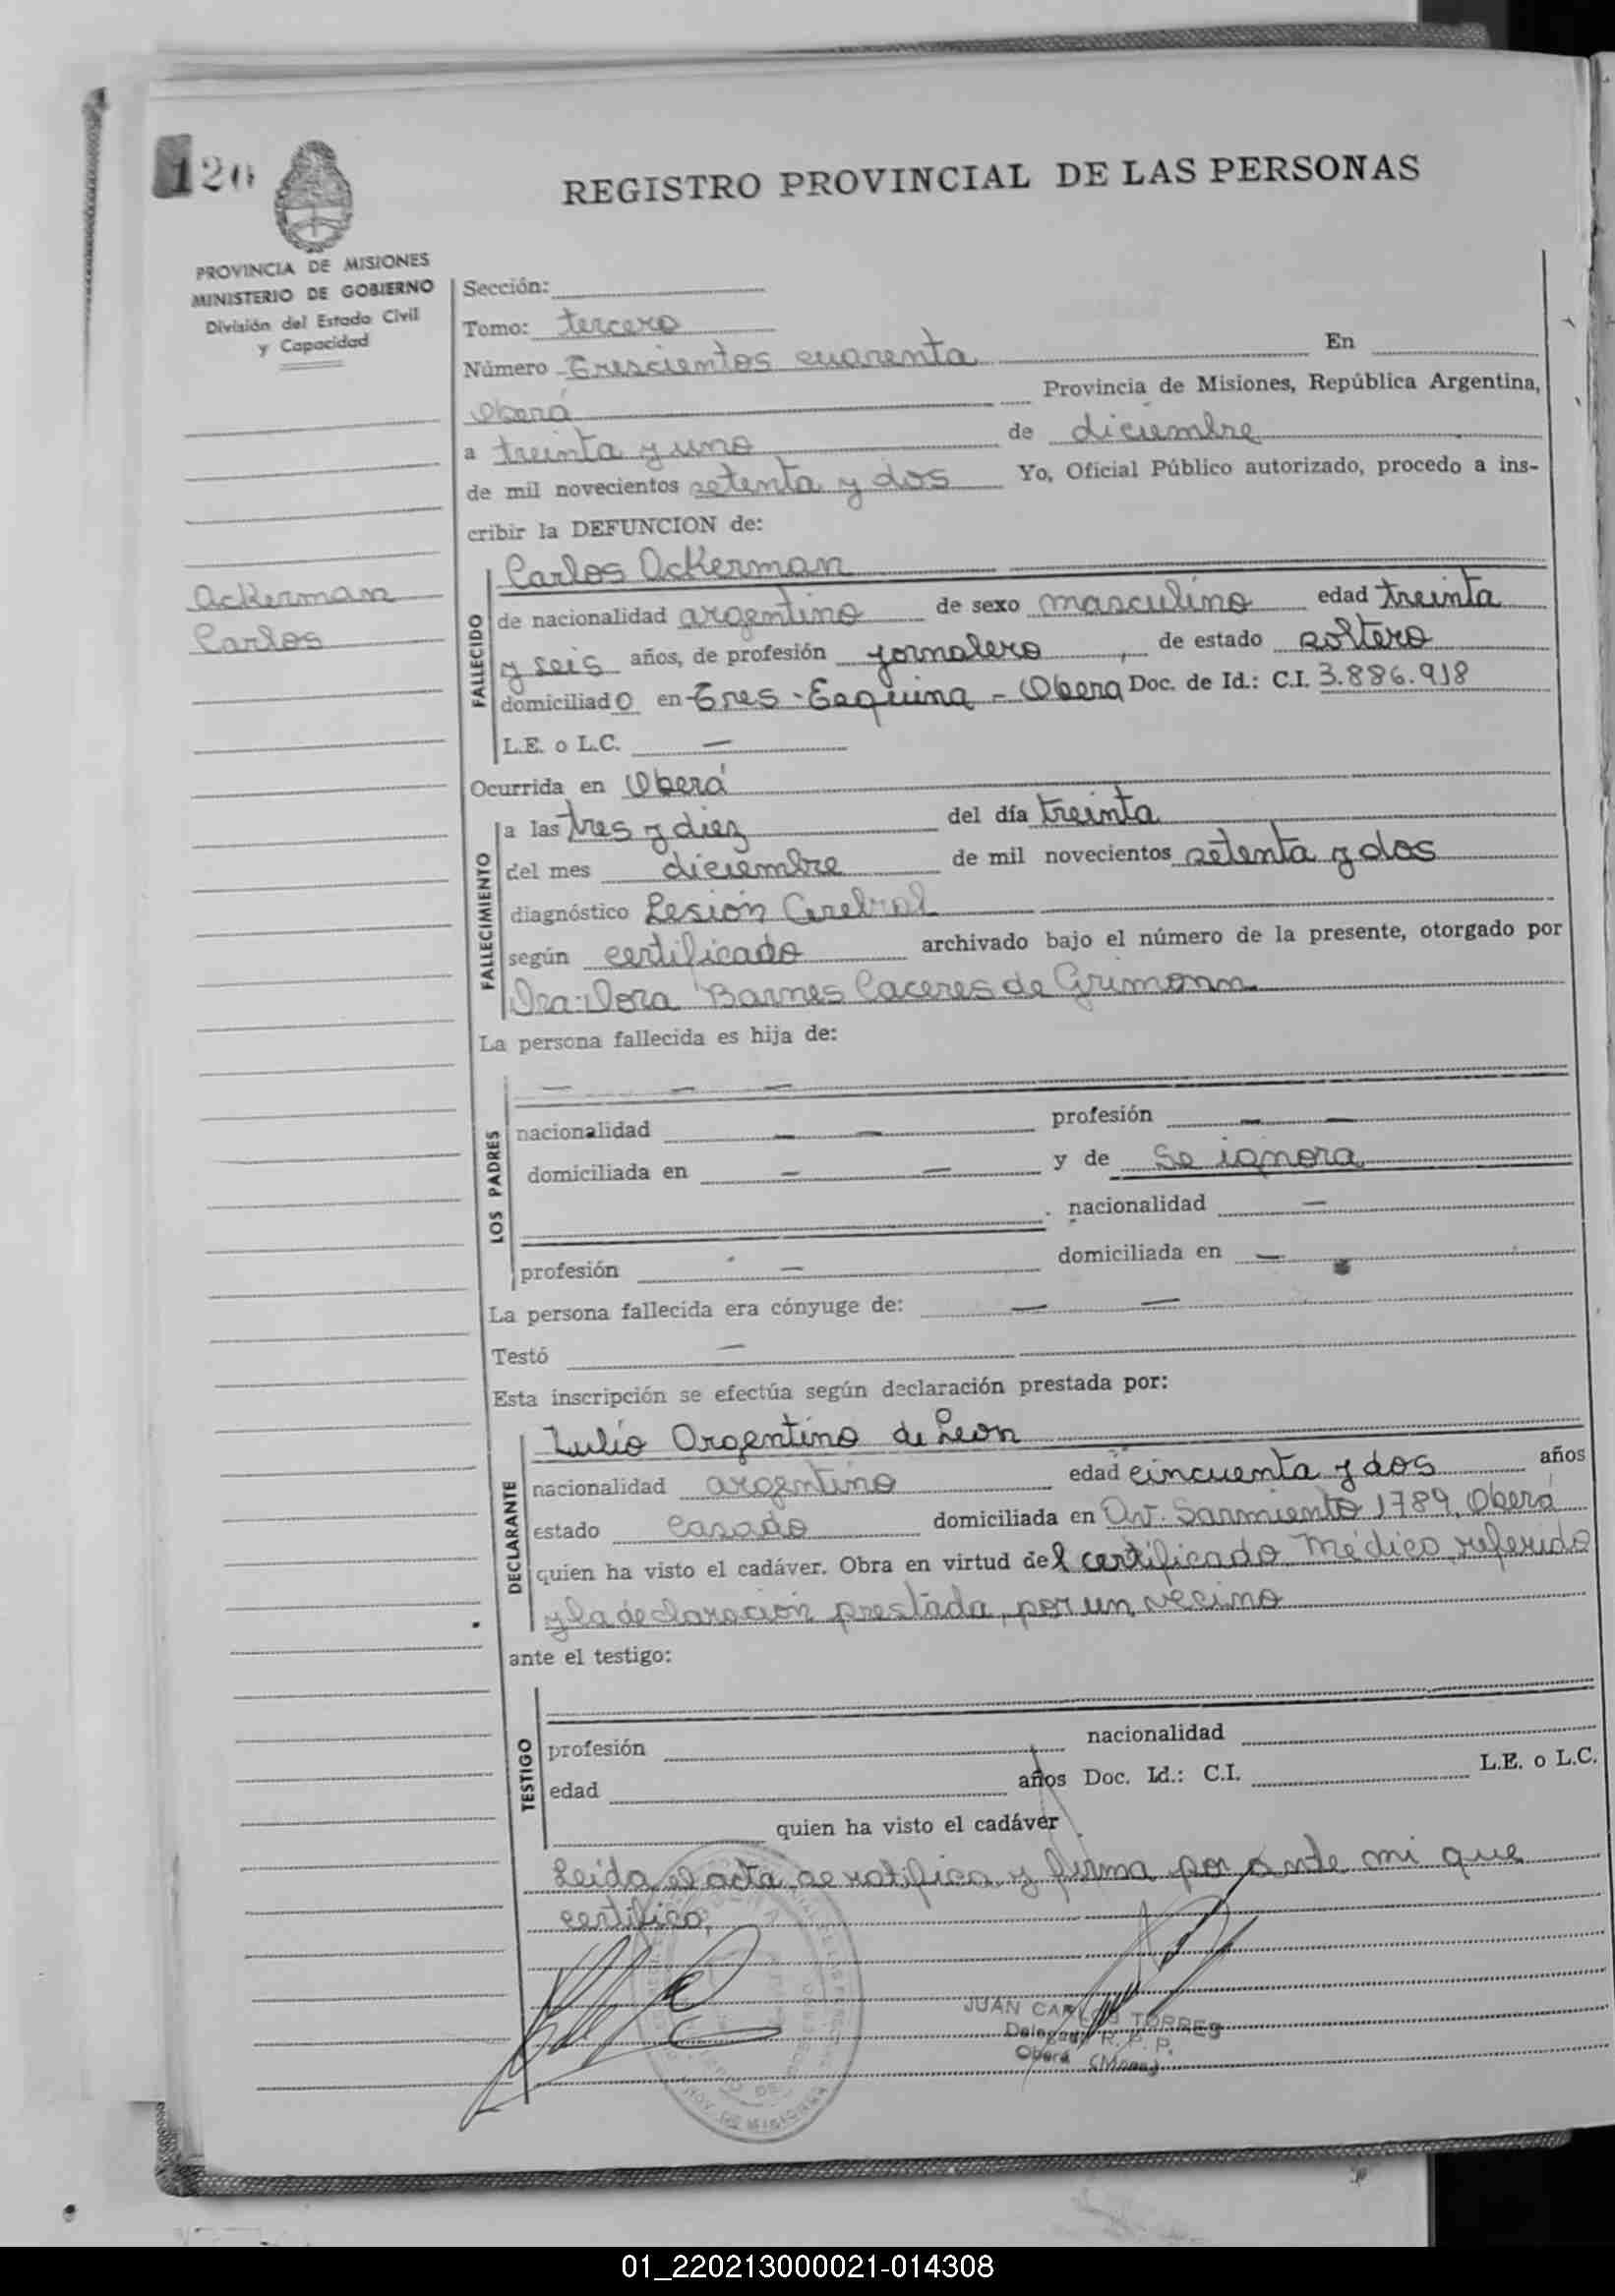 120
REGISTRO PROVINCIAL DE LAS PERSONAS
PROVINCIA DE MISIONES
MINISTERIO DE GOBIERNO
División del Estado Civil
y Capacidad
Ackerman
Carlos
Sección:
Tomo: tercero
Número Trescientos cuarenta En
Oberá Provincia de Misiones, República Argentina,
a treinta y uno de diciembre
de mil novecientos setenta y dos Yo, Oficial Público autorizado, procedo a ins-
cribir la DEFUNCION de:
FALLECIDO
Carlos Ackerman
de nacionalidad argentino de sexo masculino edad treinta
y seis años, de profesión jornalero, de estado soltero
domiciliado en Tres-Esquina - Obera Doc. de Id.: C.I. 3.886.918
L.E. o L.C. —
Ocurrida en Oberá
FALLECIMIENTO
a las tres y diez del día treinta
del mes diciembre de mil novecientos setenta y dos
diagnóstico Lesión Cerebral
según certificado archivado bajo el número de la presente, otorgado por
Dra: Dora Barnes Caceres de Grimonn
La persona fallecida es hija de:
LOS PADRES
— — —
nacionalidad — — profesión — —
domiciliada en — — y de Se ignora
nacionalidad —
profesión — domiciliada en —
La persona fallecida era cónyuge de: — —
Testó —
Esta inscripción se efectúa según declaración prestada por:
DECLARANTE
Julio Argentino de Leon
nacionalidad argentino edad cincuenta y dos años
estado casado domiciliada en Av. Sarmiento 1789, Oberá
quien ha visto el cadáver. Obra en virtud del certificado Médico referido
y la declaración prestada, por un vecino
ante el testigo:
TESTIGO
profesión nacionalidad
edad años Doc. Id.: C.I. L.E. o L.C.
quien ha visto el cadáver
Leída el acta, se ratifica y firma por ante mi que
certifico,
JUAN CARLOS TORRES
Delegado R. P. P.
Oberá (Mnes)
PROV. DE MISIONES
01_220213000021-014308